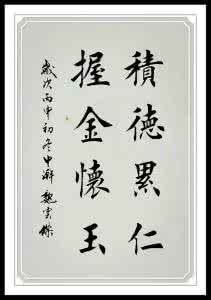 積德累仁
握金懷玉
歲次丙申初冬中澣 魏雲傑